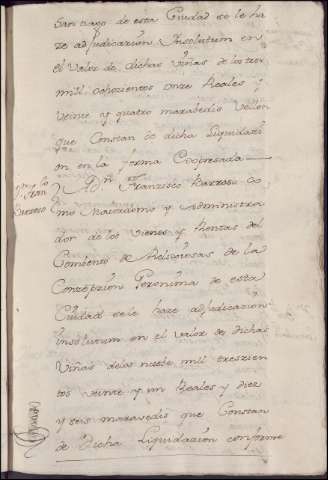 Santiago de esta Ciudad se le ha
ze adjudicazion Insolutum en
el Valor de dichas Viñas de los tres
mill ochozientos onze Reales y
Veinte y quatro maravedis Vellon
que Constan de dicha Liquidazi
on en la forma Expresada
Dn. Fran.co Barroso
A Dn. Francisco Barroso Co
mo Maiordomo y Administra
dor de los vienes y Rentas del
Combento de Relixiosas de la
Conzepzion Geronima de esta
Ciudad se le haze adjudicazion
insolutum en el valor de dichas
Viñas de los nuebe mill treszien
tos veinte y un Reales y diez
y seis maravedis que Constan
de dicha Liquidazion conforme